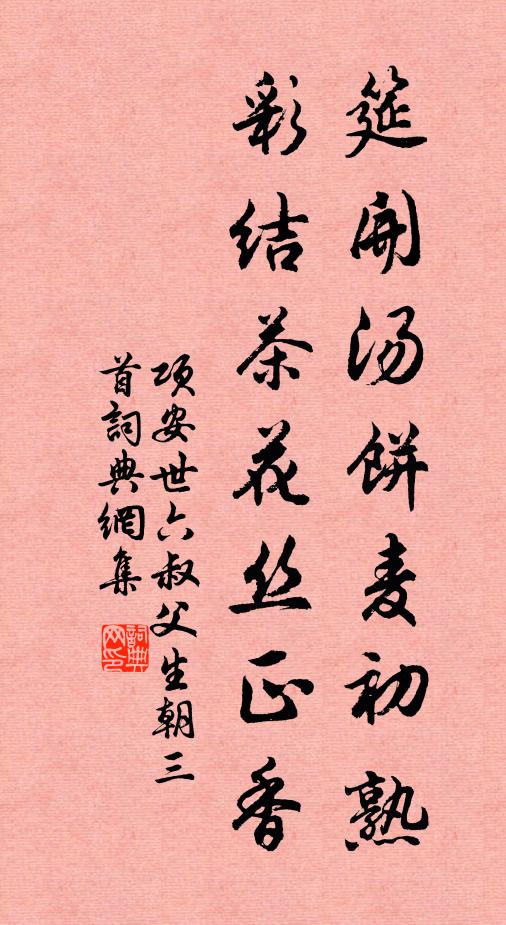 筵开汤餅麦初熟
彩结茶花丝正香
项安世六叔父生朝三
首詞典網集
詞典
网印